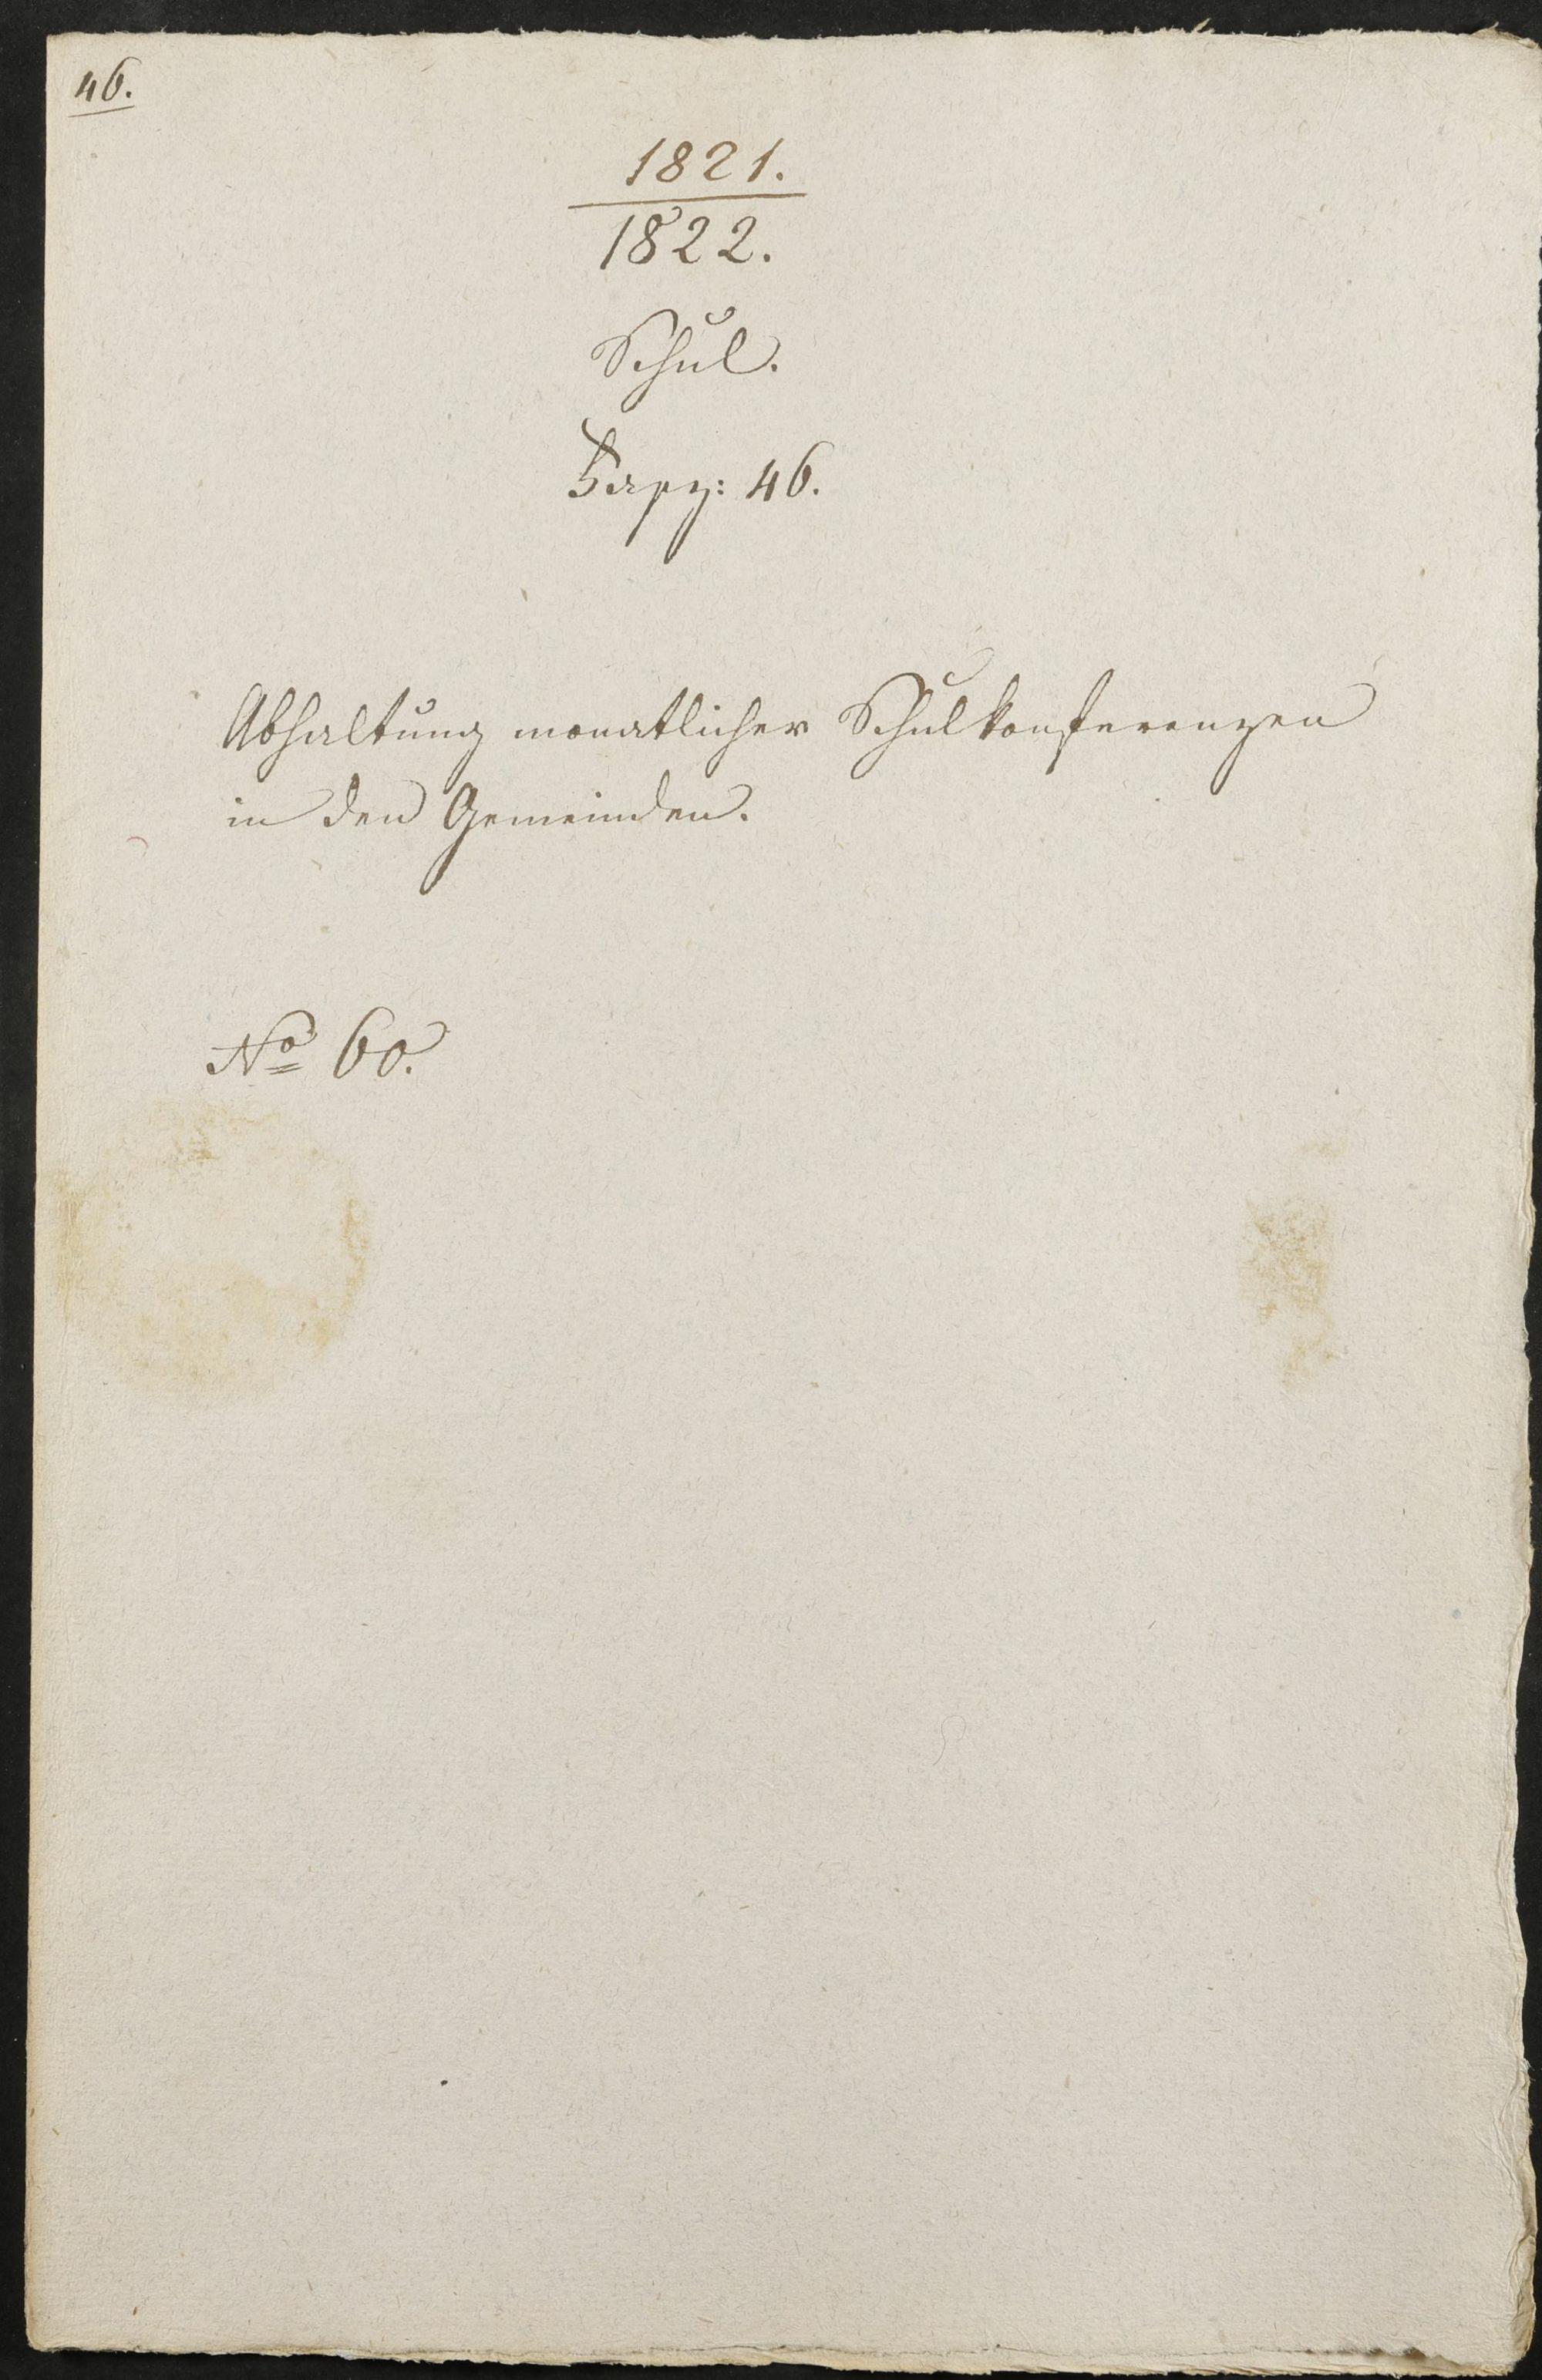 46.
1821.
1822.
Schul.
Fasz: 46.
Abhaltung monatlicher Schulkonferenzen
in den Gemeinden.
No 60.